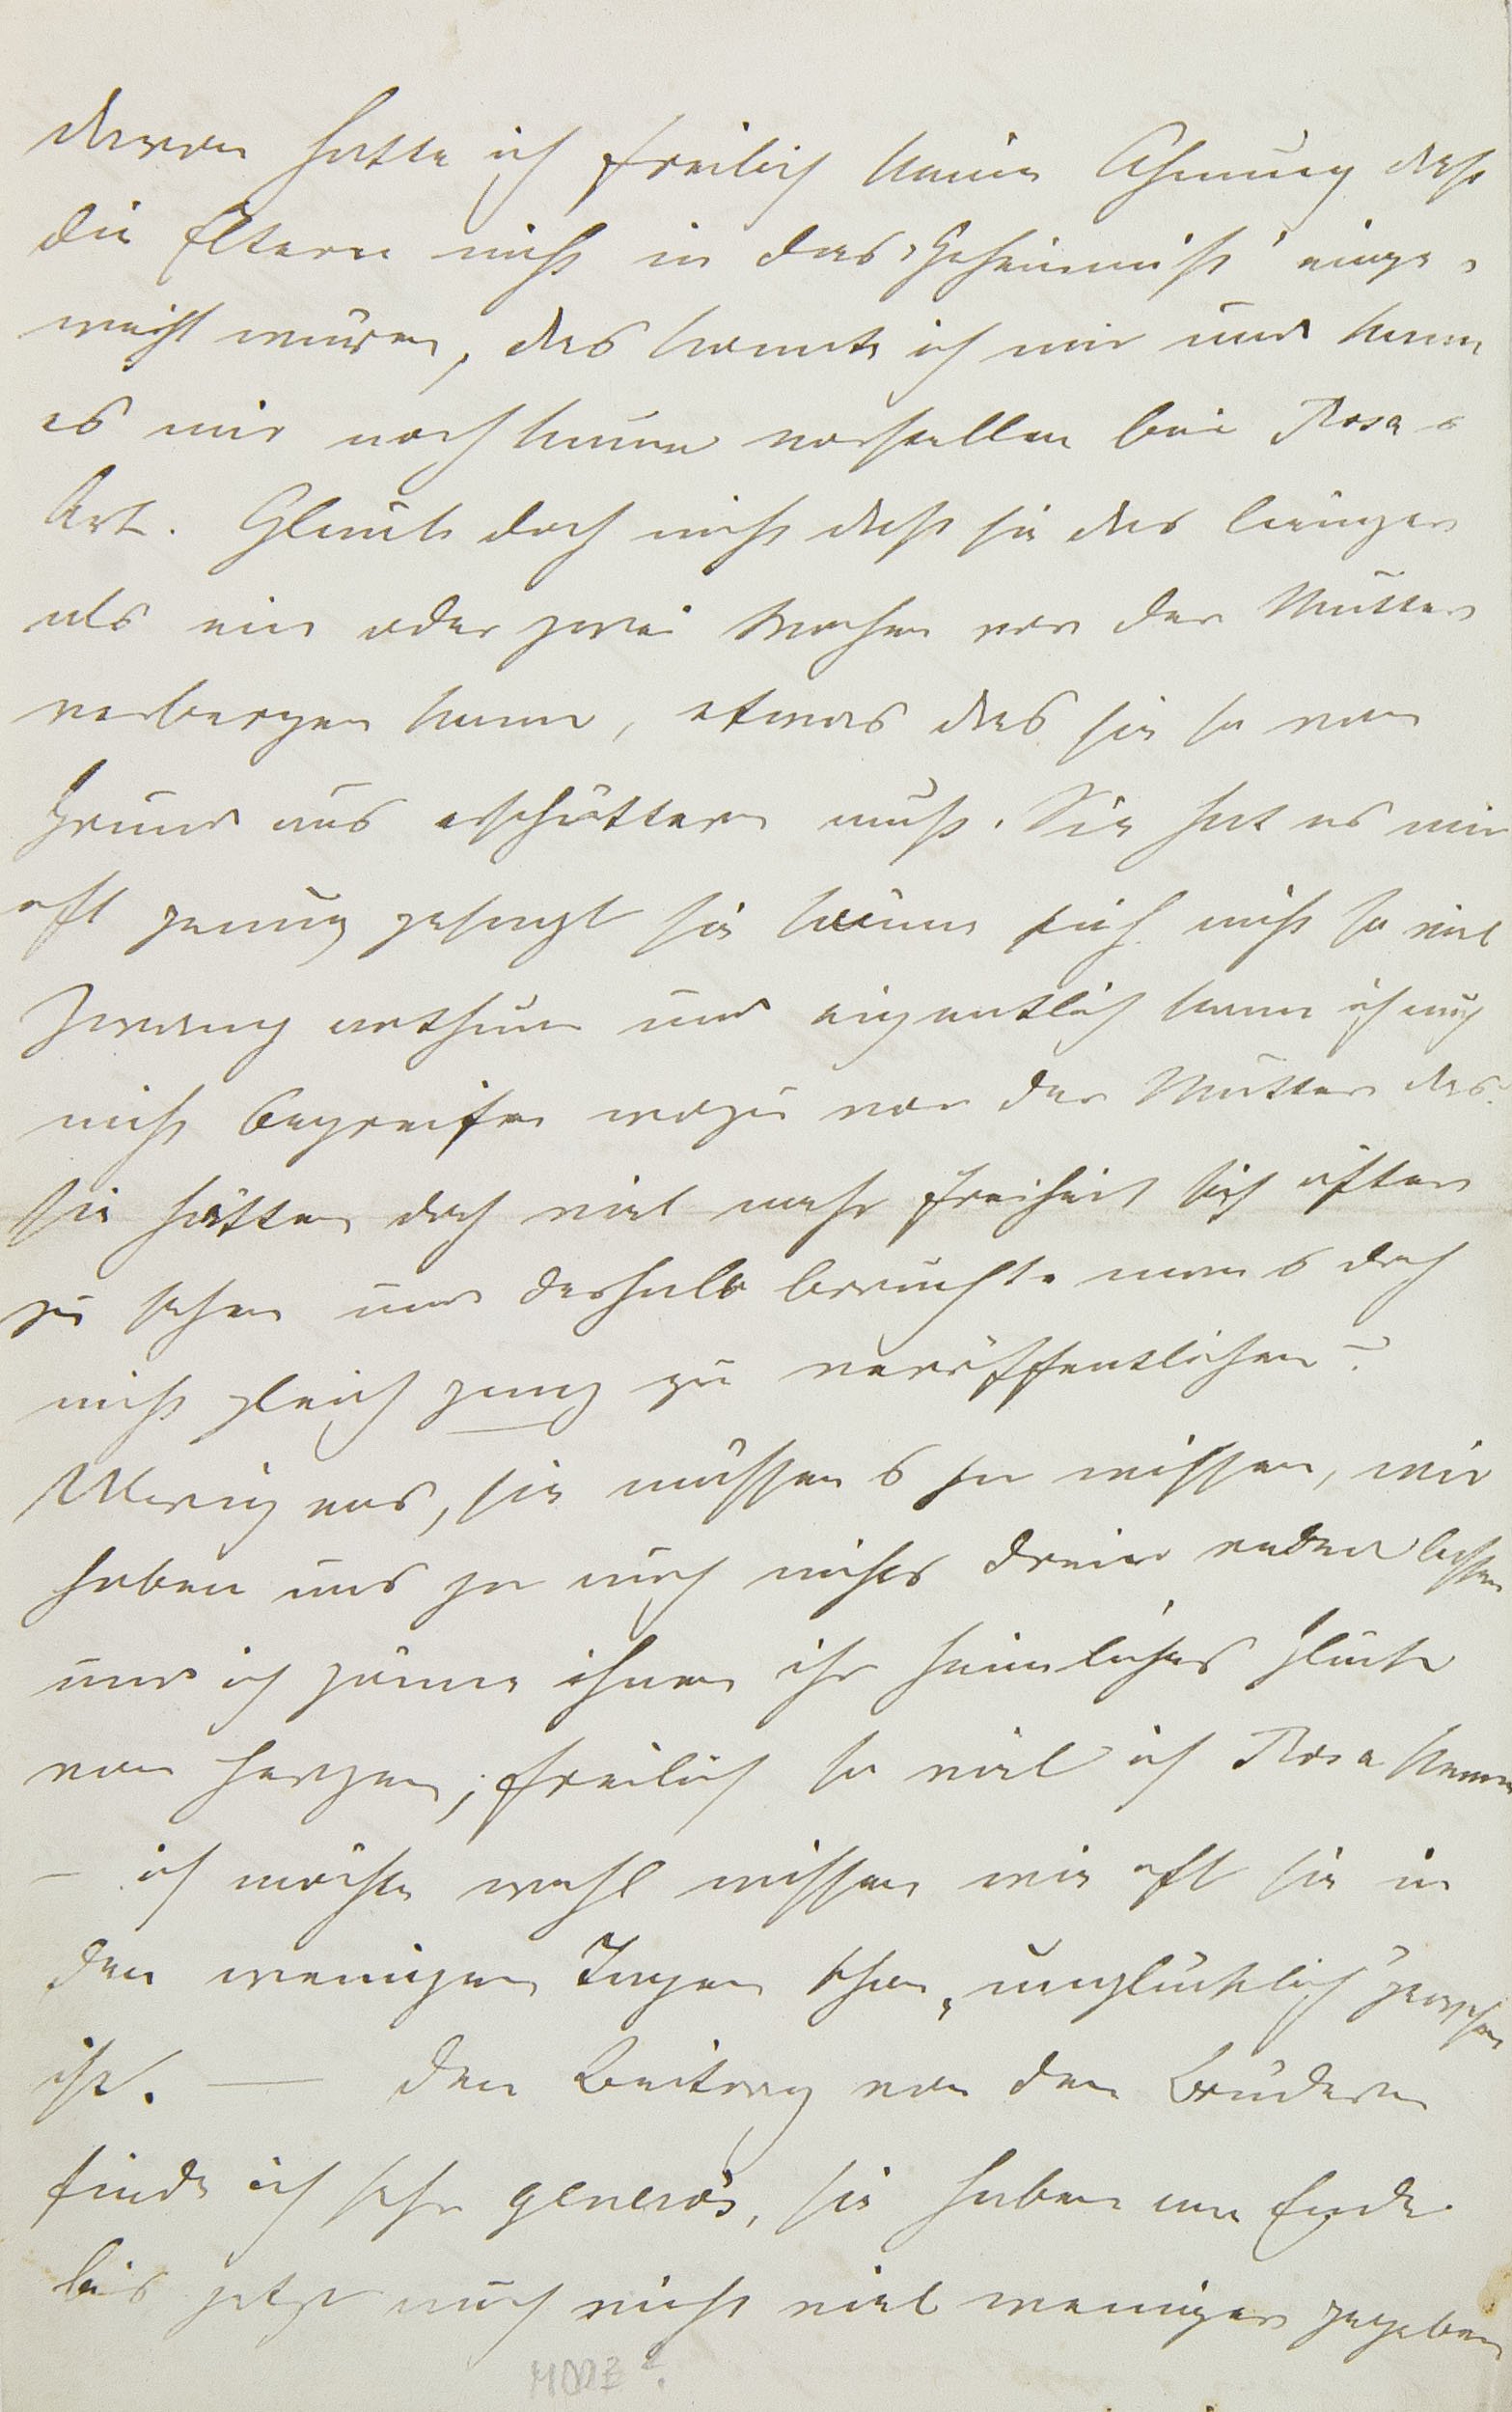 davon hatte ich freilich keine Ahnung daß
die Eltern nicht in das „Geheimniß" einge-
weiht wären, das konnte ich mir und kann
es mir noch kaum vorstellen bei Rosa's
Art. Glaub doch nicht daß sie das länger
als ein oder zwei Wochen vor der Mutter
verbergen kann, etwas das sie so von
Grund aus erschüttern muß. Sie hat es mir
oft genug gesagt sie könne sich nicht so viel
Zwang anthun und eigentlich kann ich auch
nicht begreifen wozu vor der Mutter das?
Sie hätten doch viel mehr Freiheit sich öfter
zu sehen und deshalb brauchte man's doch
nicht gleich ganz zu veröffentlichen?
Übrigens, sie müssen's ja wissen, wir
haben uns ja auch nichts drein reden lassen
und ich gönne ihnen ihr heimliches Glück
von Herzen; freilich so viel ich Rosa kenne
– ich möchte wohl wissen wie oft sie in
den wenigen Tagen schon „unglücklich" gewesen
ist. — Den Beitrag von den Brüdern
finde ich sehr generös, sie haben am Ende
bis jetzt auch nicht viel weniger gegeben